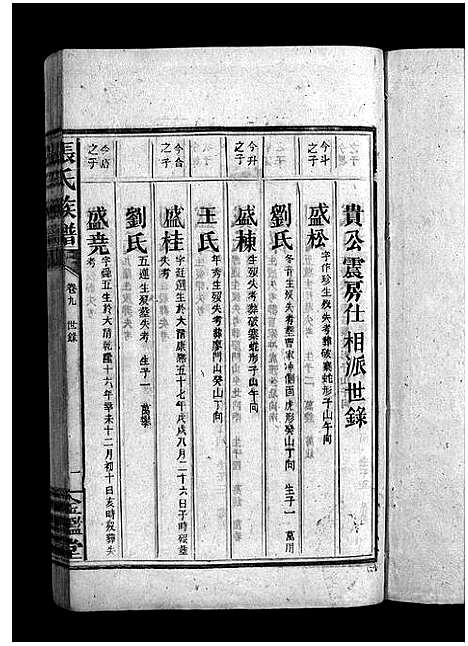 貴公震房仕相派世錄
今斗之子
盛松
字作珍生歿失考葬破寨蛇形子山午向
劉氏
冬音生歿失考葬曹家冲側面虎形癸山丁向 生子一 萬用
今斗之子
盛棟
生歿失考葬破寨蛇形子山午向
王氏
年秀生歿失考葬廖門山癸山丁向
今台之子
盛桂
字廷選生於大清康熙五十七年戊戌八月二十六日子時歿葬失考
劉氏
五還生歿葬失考 生子一 萬擧
今
之子
盛堯
字舜五生於大清乾隆十六年辛未十二月初十日亥時歿葬失考
張氏族譜
卷九 世錄
一
金鑑堂